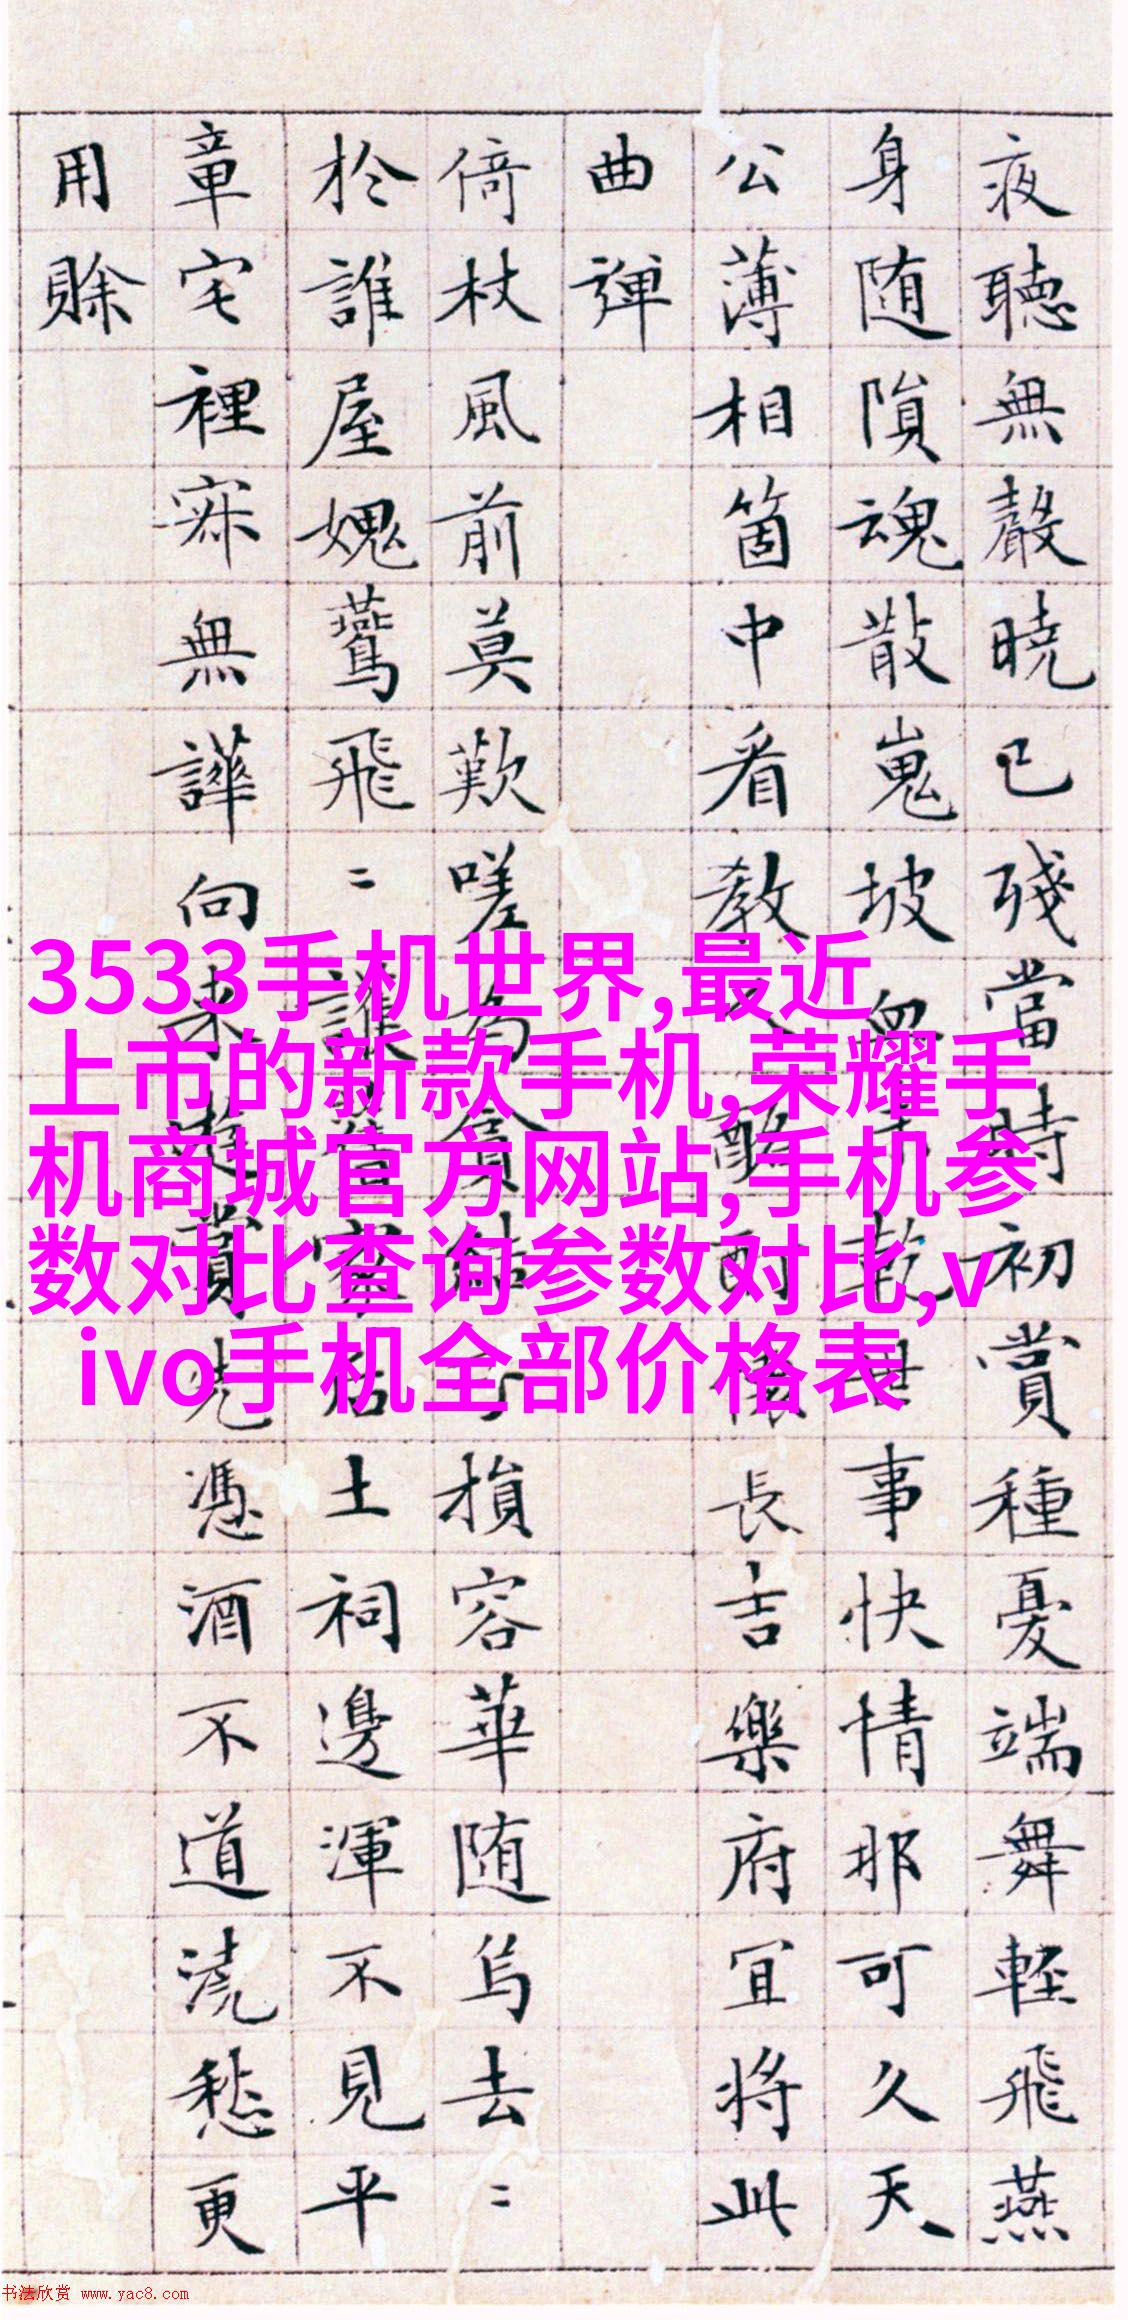 夜聽無聲曉已殘當時初賞種憂端舞輕飛燕
身随隕魂散嵬坡無乾世事快情那可久天
公薄相箇中看教人酸長吉樂府宜将此
曲彈
倚杖風前莫歎嗟為貪結子損容華随鸟去〻
於誰屋媿鶯飛〻誰土祠邊渾不見平
章宅裡寂無譁向来遊賞先憑酒不道澆愁更
用賖
3533手机世界,最近
上市的新款手机,荣耀手
机商城官方网站,手机参
数对比查询参数对比,v
ivo手机全部价格表
书法欣赏 www.yac8.com